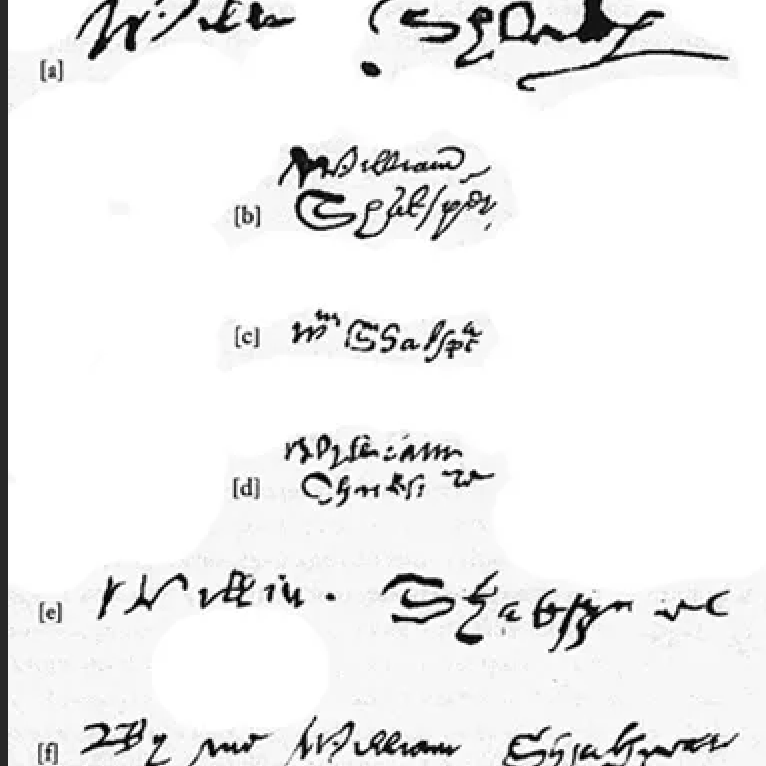 [a] Willm Shakp
[b] William
Shakspēr
[c] Wm Shakspe
[d] William
Shakspere
[e] Willm Shakspere
[f] By me William Shakspeare